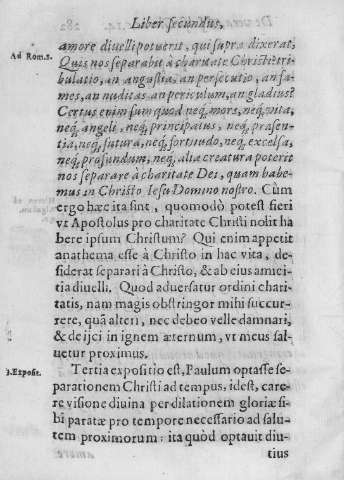 Liber secundus,
amore diuelli potuerit, qui supra dixerat,
Ad Rom. 8.
Quis nos separabit à charitate Christi? tri
bulatio, an angustia, an persecutio, an fa-
mes, an nuditas an periculum, an gladius?
Certus enim sum quod neq; mors, neq; vita,
neq; angeli, neq; principatus, neq; præsen-
tia, neq; futura, neq; fortitudo, neq; excelsa,
neq; profundum, neq; alia creatura poterit
nos separare à charitate Dei, quam habe-
mus in Christo Iesu Domino nostro. Cùm
ergo hæc ita sint, quomodò potest fieri
vt Apostolus pro charitate Christi nolit ha
bere ipsum Christum? Qui enim appetit
anathema esse à Christo in hac vita, de-
siderat separari à Christo, & ab eius amici-
tia diuelli. Quod aduersatur ordini chari-
tatis, nam magis obstringor mihi succur-
rere, quã alteri, nec debeo velle damnari,
& deijci in ignem æternum, vt meus sal-
uetur proximus.
3. Exposit.
Tertia expositio est, Paulum optasse se-
parationem Christi ad tempus, idest, care-
re visione diuina per dilationem gloriæ si-
bi paratæ pro tempore necessario ad salu-
tem proximorum: ita quòd optauit diu-
tius